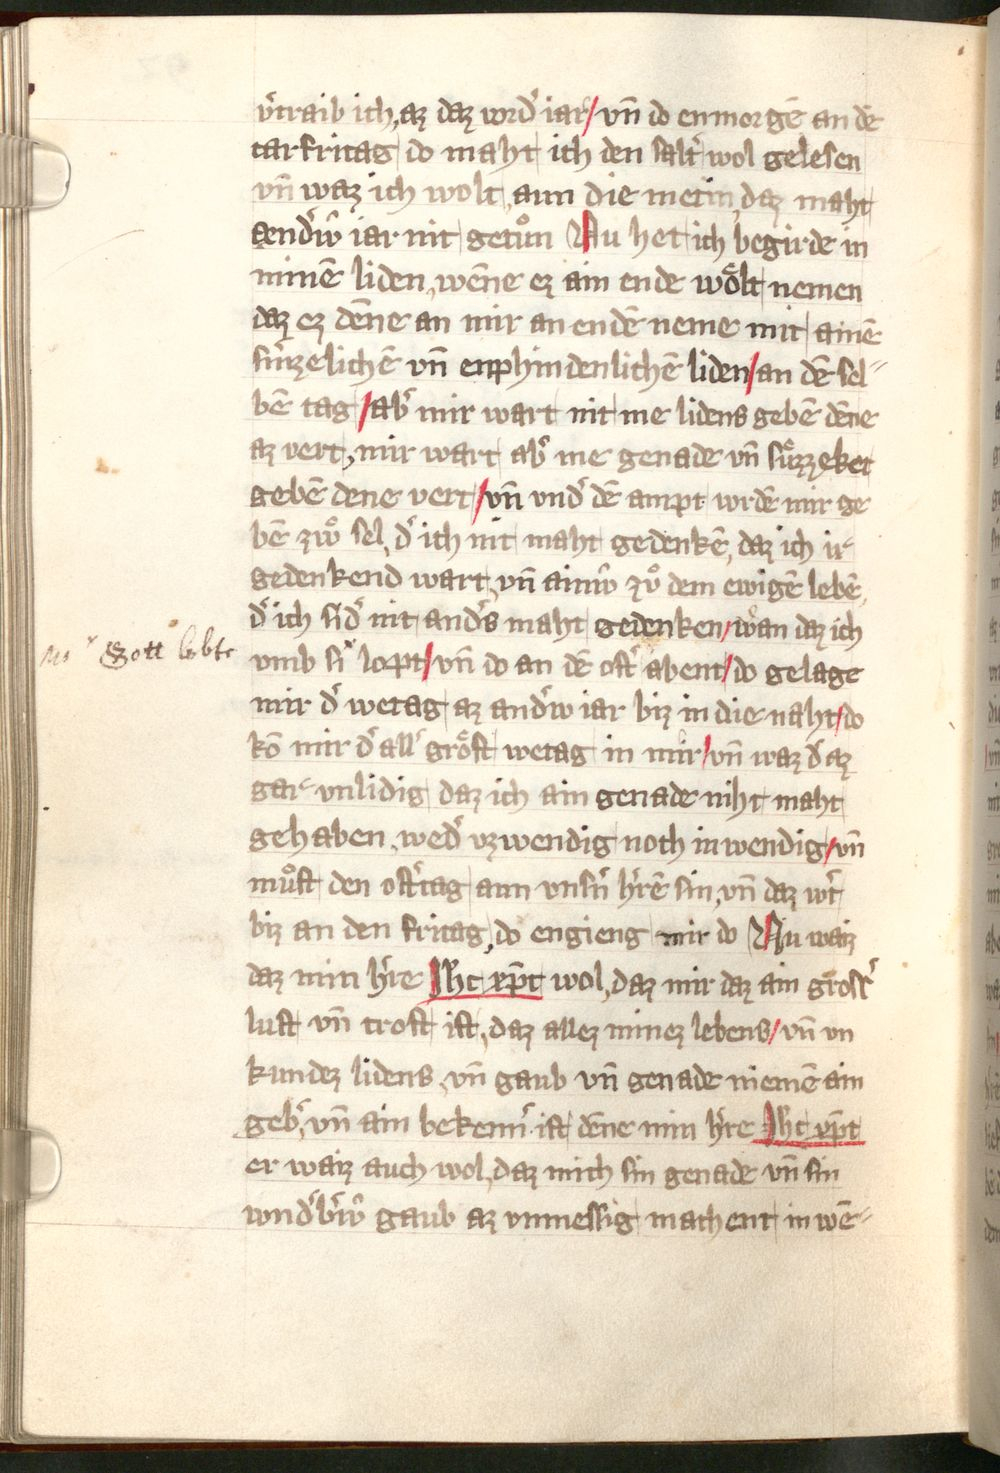 v͛traib ich, az daz vord͛ iar / vn̄ do enmorgē an dē
carfritag do maht ich den salt͛ wol gelesen
vn̄ waz ich wolt, aun die metin, daz maht
ich iar nit getuͦn Nu het ich begirde in
minē liden, wēne ez ain ende woͤlt nemen
daz ez dēne an mir an endē neme mit ainē
súrzelichē vn̄ enphindenlichē liden / an dē sel-
bē tag / ab͛ mir wart nit me lidens gebē dēne
az vert, mir wart ab͛ me genade vn̄ suͤzzeket
gebē dene vert / vn̄ vnd͛ dē ampt wrdē mir ge
bē zwoͤ sel, d͛ ich nit maht gedenkē, daz ich ir
gedenkend wart, vn̄ ainiv̂ zuͦ dem ewigē lebē,
d͛ ich sid͛ nit and͛s maht gedenken / wan daz ich
vmb si͛ lopt / vn̄ do an dē ost͛ abent / do gelage
mir d͛ wetag az and͛iv iar biz in die naht / do
kō mir d͛ all͛ groͤst wetag in mir / vn̄ waz d͛ az
gar vnlidig daz ich ain genade niht maht
gehaben, wed͛ vzwendig noth inwendig / vn̄
muͦst den ost͛tag aun vns͛n h͛rē sin, vn̄ daz w͛t
biz an den fritag, do engieng mir do Nu waiz
daz min h͛re Jh̄c xp̄c wol, daz mir daz ain groͤst͛
lust vn̄ trost ist, daz allez minez lebens / vn̄ vn
kundez lidens, vn̄ gaub vn̄ genade niemē ain
geb͛, vn̄ ain bekenn͛ ist dēne min h͛re Jh̄c xp̄c
er waiz auch wol, daz mich sin genade vn̄ sin
wnd͛b͛iv̂ gaub az vnmessig machent in wē-
Gott lobte